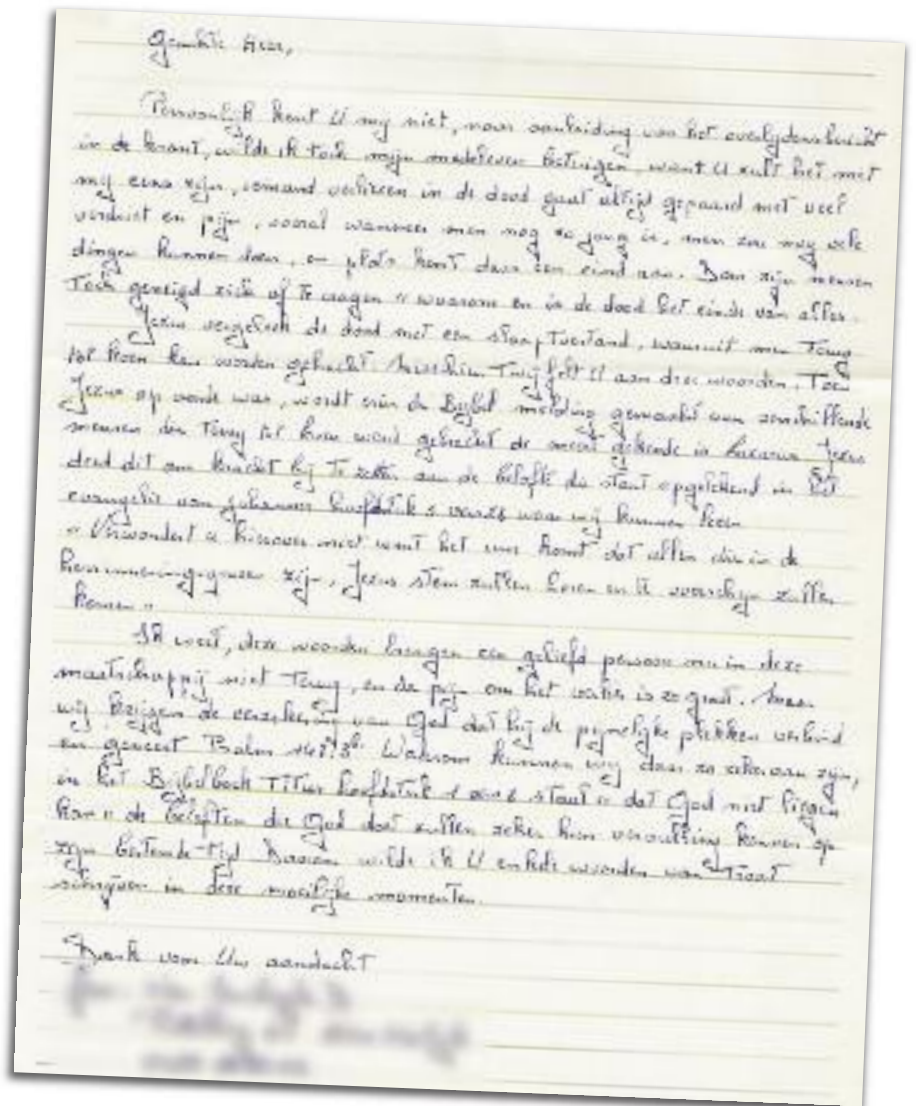 Geachte Heer,
Persoonlijk kent U mij niet, naar aanleiding van het overlijdensbericht
in de krant, wilde ik toch mijn medeleven betuigen, want U zult het met
mij eens zijn, iemand verliezen in de dood gaat altijd gepaard met veel
verdriet en pijn, vooral wanneer men nog zo jong is, men zou nog vele
dingen kunnen doen, en plots komt daar een eind aan. Dan zijn mensen
Toch geneigd zich af te vragen "waarom en is de dood het einde van alles.
Jezus vergeleek de dood met een slaaptoestand, waaruit men Terug
tot leven kan worden gebracht. Misschien Twijfelt U aan deze woorden. Toen
Jezus op aarde was, wordt er in de Bijbel melding gemaakt van verschillende
mensen die Terug tot leven werd gebracht de meest gekende is Lazarus Jezus
deed dit om kracht bij te zetten aan de belofte die staat opgetekend in het
evangelie van Johannes hoofdstuk 5 vers 28 waar wij kunnen lezen
"Verwondert u hierover niet want het uur komt dat allen die in de
herinneringsgraven zijn, Jezus stem zullen horen en te voorschijn zullen
komen"
Ik weet, deze woorden brengen een geliefd persoon nu in deze
maatschappij niet Terug, en de pijn om het verlies is zo groot. Maar
wij krijgen de verzekering van God dat hij de pijnelijke plekken verbind
en geneest Psalm 147:3b. Waarom kunnen wij daar zo zeker van zijn,
in het Bijbelboek Titus hoofdstuk 1 vers 2 staat "dat God niet liegen
kan" de beloften die God doet zullen zeker hun vervulling kennen op
zijn bestemde Tijd Daarom wilde ik U enkele woorden van Troost
schrijven in deze moeilijke momenten.
Dank voor Uw aandacht